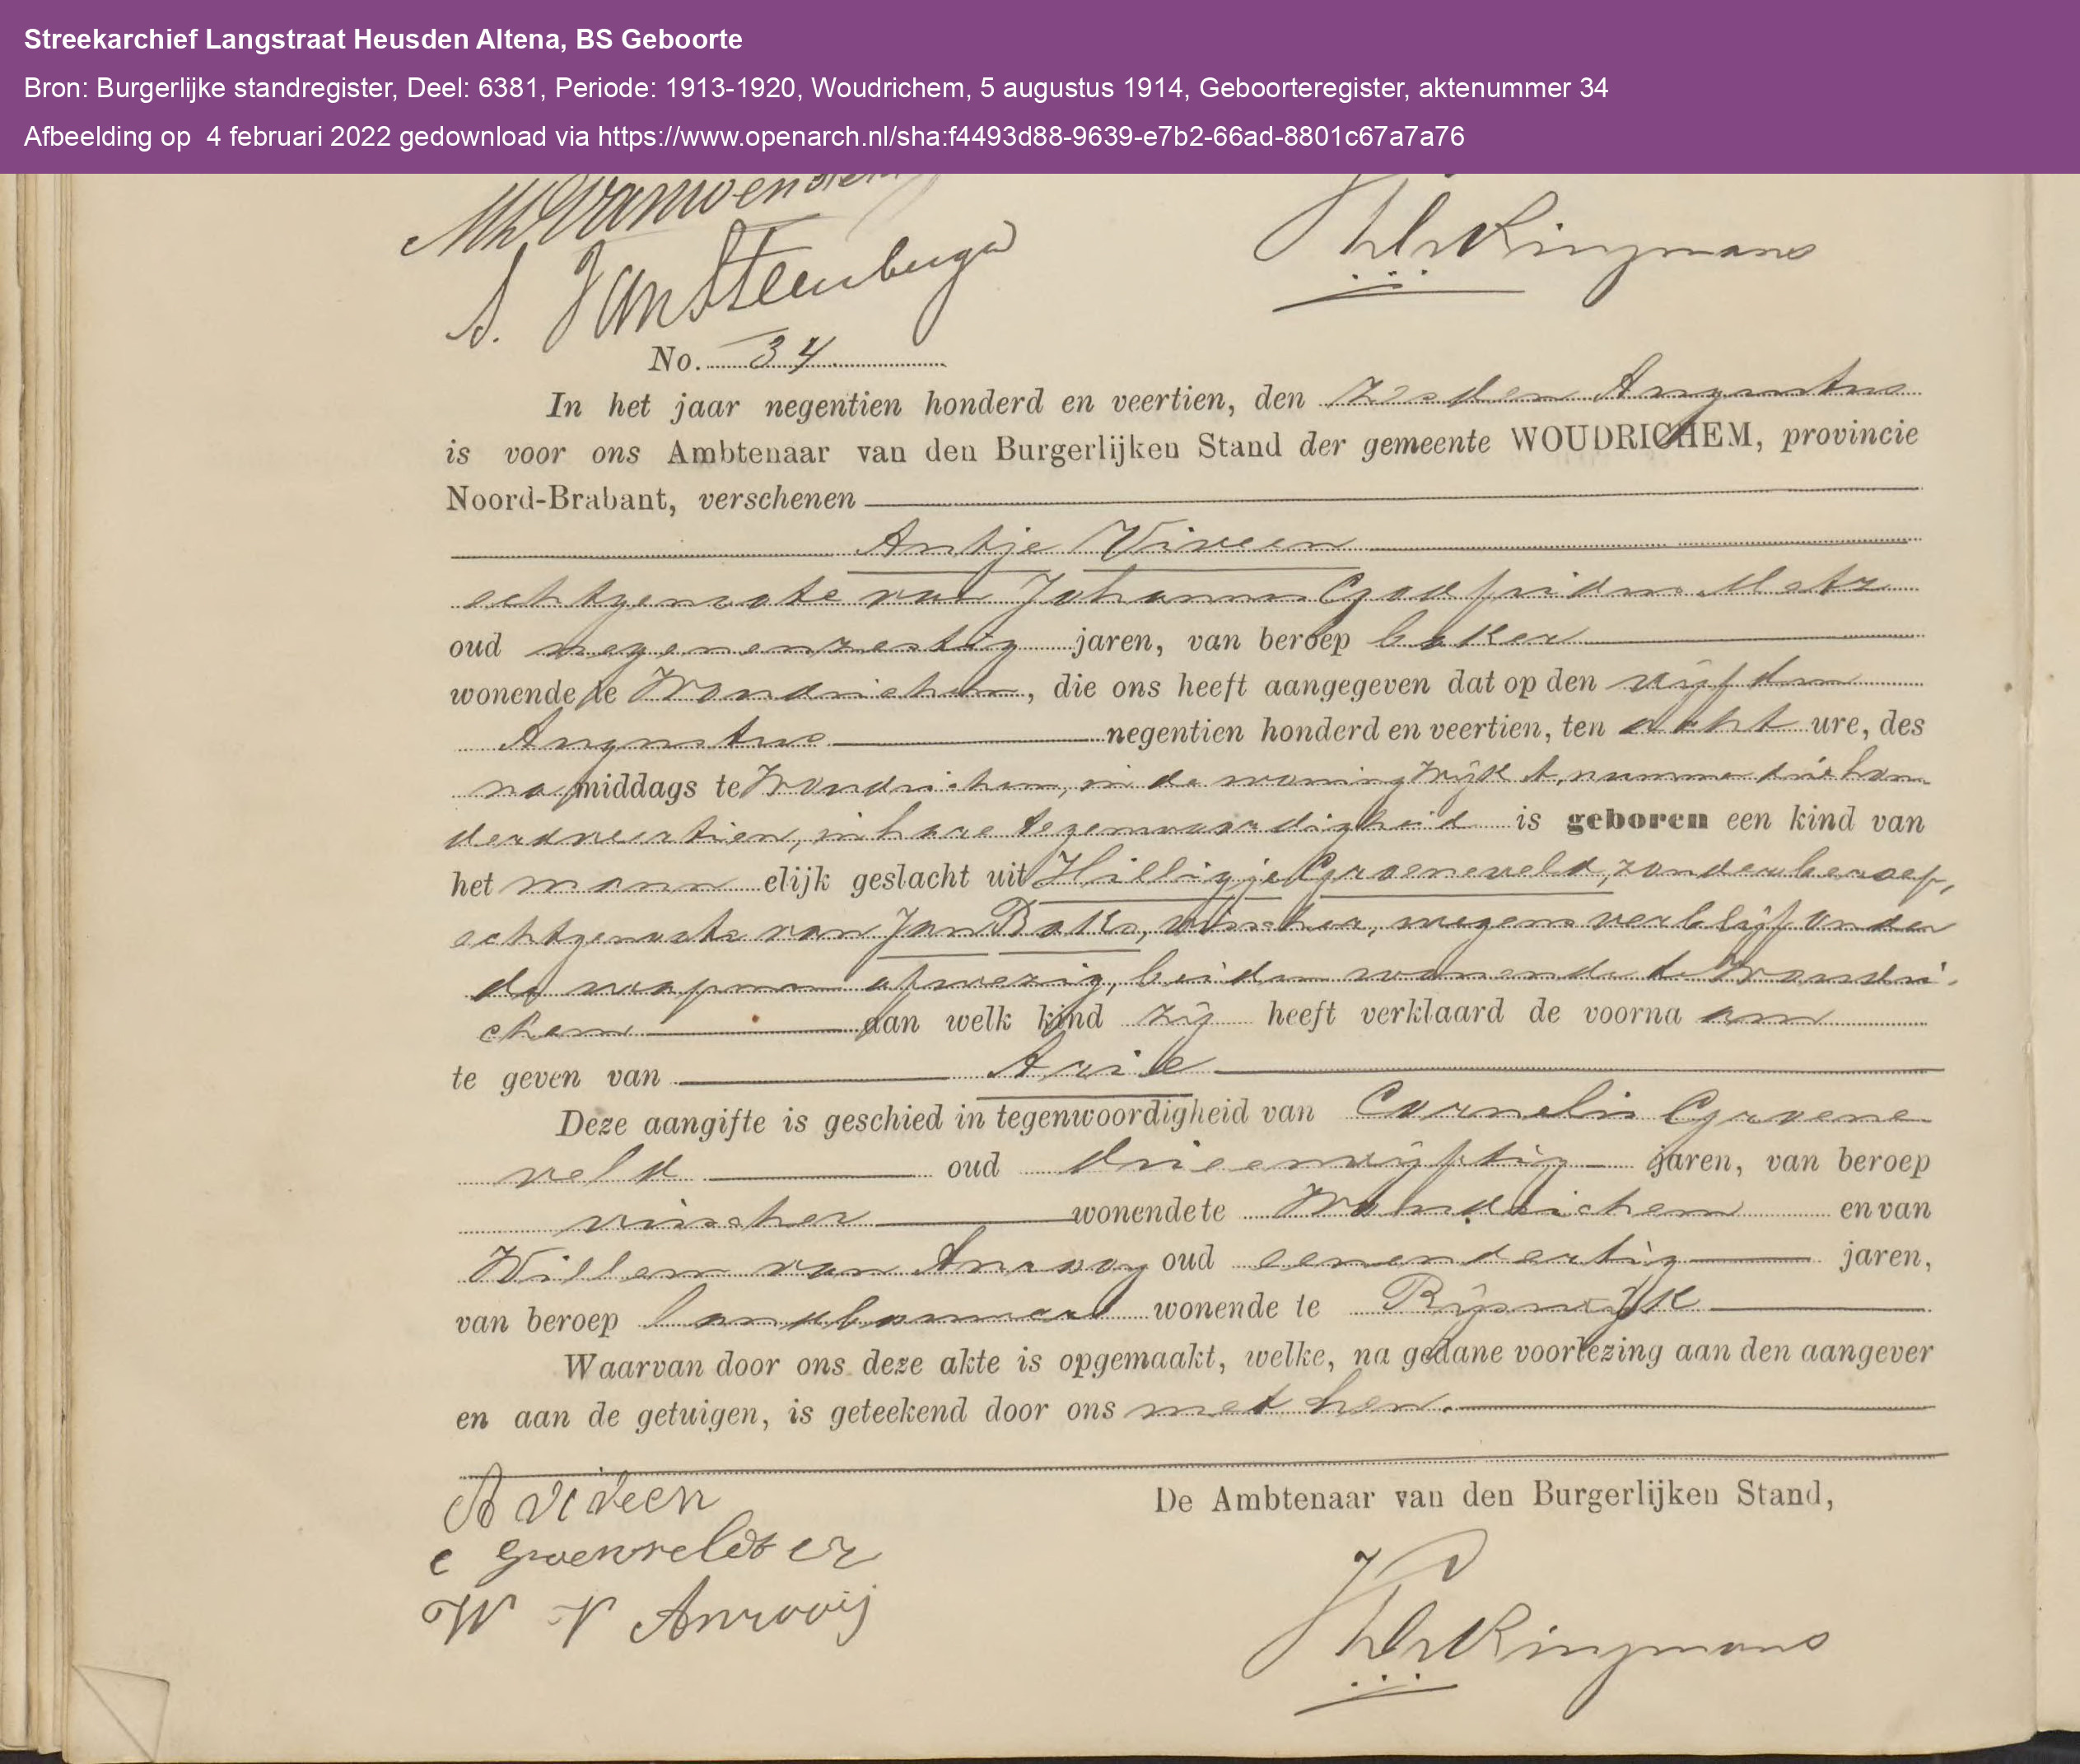 Streekarchief Langstraat Heusden Altena, BS Geboorte
Bron: Burgerlijke standregister, Deel: 6381, Periode: 1913-1920, Woudrichem, 5 augustus 1914, Geboorteregister, aktenummer 34
Afbeelding op 4 februari 2022 gedownload via https://www.openarch.nl/sha:f4493d88-9639-e7b2-66ad-8801c67a7a76
Ringmans
No. 34
In het jaar negentien honderd en veertien, den zesden Augustus
is voor ons Ambtenaar van den Burgerlijken Stand der gemeente WOUDRICHEM, provincie
Noord-Brabant, verschenen
Antje Viveen
echtgenoote van Johannes Godfridus Metz
oud negenenzestig jaren, van beroep baker
wonende te Woudrichem, die ons heeft aangegeven dat op den vijfden
Augustus negentien honderd en veertien, ten acht ure, des
na middags te Woudrichem, in de woning wijk A, nummer driehon
derdveertien, in hare tegenwoordigheid is geboren een kind van
het mann elijk geslacht uit Hilligje Groeneveld, zonder beroep,
echtgenoote van Jan Baks, visscher, wegens verblijf onder
de wapenen afwezig, beiden wonende te Woudri-
chem aan welk kind zij heeft verklaard de voorna am
te geven van Arie
Deze aangifte is geschied in tegenwoordigheid van Cornelis Groene
veld oud drieenvijftig jaren, van beroep
visscher wonende te Woudrichem en van
Willem van Anrooy oud eenendertig jaren,
van beroep landbouwer wonende te Rijswijk
Waarvan door ons deze akte is opgemaakt, welke, na gedane voorlezing aan den aangever
en aan de getuigen, is geteekend door ons met hen.
A Viveen
De Ambtenaar van den Burgerlijken Stand,
W V Anrooij
Ringmans